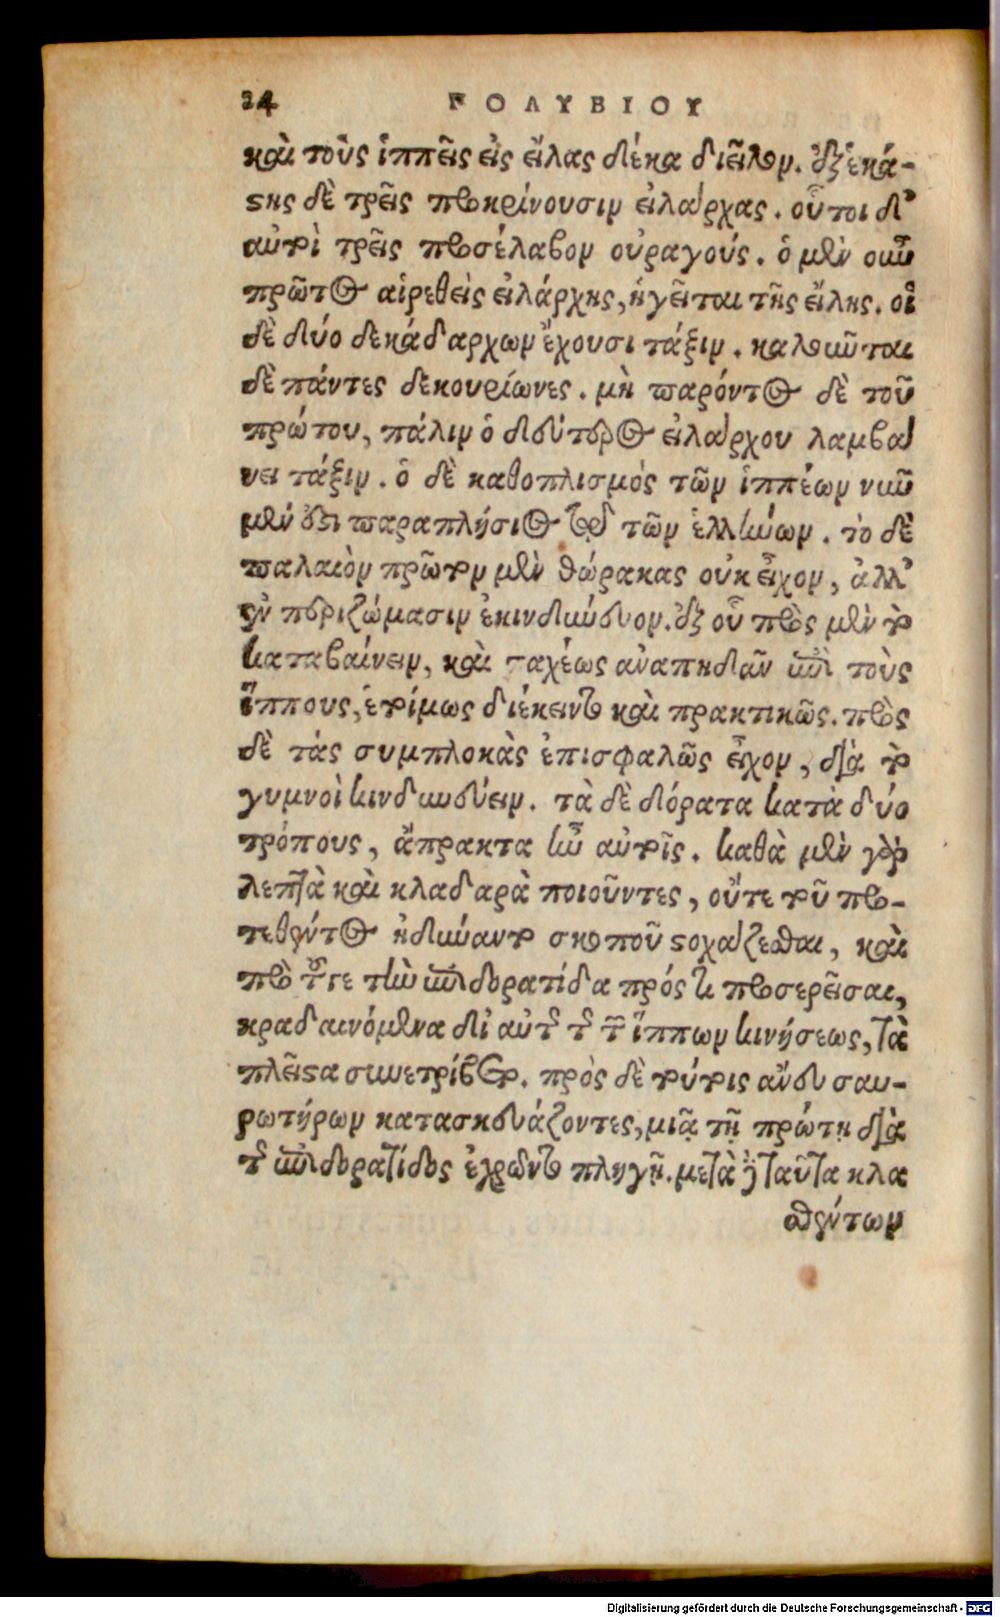 24 ΠΟΛΥΒΙΟΥ
καὶ τοὺς ἱππεῖς εἰς εἴλας δέκα διεῖλον. ἐξ ἑκά-
στης δὲ τρεῖς προκρίνουσιν εἰλάρχας. οὗτοι δ'
αὐτοὶ τρεῖς προσέλαβον οὐραγούς. ὁ μὲν οὖν
πρῶτος αἱρεθεὶς εἰλάρχης, ἡγεῖται τῆς εἴλης. οἱ
δὲ δύο δεκάδαρχων ἔχουσι τάξιν. καλοῦνται
δὲ πάντες δεκουρίωνες. μὴ παρόντος δὲ τοῦ
πρώτου, πάλιν ὁ δεύτερος εἰλάρχου λαμβά
νει τάξιν. ὁ δὲ καθοπλισμὸς τῶν ἱππέων νῦν
μέν ἐστι παραπλήσιος τῷ τῶν ἑλλήνων. τὸ δὲ
παλαιὸν πρῶτον μὲν θώρακας οὐκ εἶχον, ἀλλ'
ἐν περιζώμασιν ἐκινδύνευον. ἐξ οὗ πρὸς μὲν τὸ
καταβαίνειν, καὶ ταχέως ἀναπηδᾶν ἐπὶ τοὺς
ἵππους, ἑτοίμως διέκειντο καὶ πρακτικῶς. πρὸς
δὲ τάς συμπλοκὰς ἐπισφαλῶς εἶχον, διὰ τὸ
γυμνοὶ κινδυνεύειν. τὰ δὲ δόρατα κατὰ δύο
τρόπους, ἄπρακτα ἦν αὐτοῖς. καθὰ μὲν γὰρ
λεπτὰ καὶ κλαδαρὰ ποιοῦντες, οὔτε τοῦ προ-
τεθέντος ἠδύναντο σκοποῦ στοχάζεσθαι, καὶ
πρὸ τοῦ γε τὴν ἐπιδορατίδα πρός τι προσερεῖσαι,
κραδαινόμενα δι' αὐτῆς τῆς τῶν ἵππων κινήσεως, τὰ
πλεῖστα συνετρίβετο. πρὸς δὲ τούτοις ἄνευ σαυ-
ρωτήρων κατασκευάζοντες, μιᾷ τῇ πρώτῃ διὰ
τῆς ἐπιδορατίδος ἐχρῶντο πληγῇ. μετὰ δὲ ταῦτα κλα
σθέντων
Digitalisierung gefördert durch die Deutsche Forschungsgemeinschaft - DFG